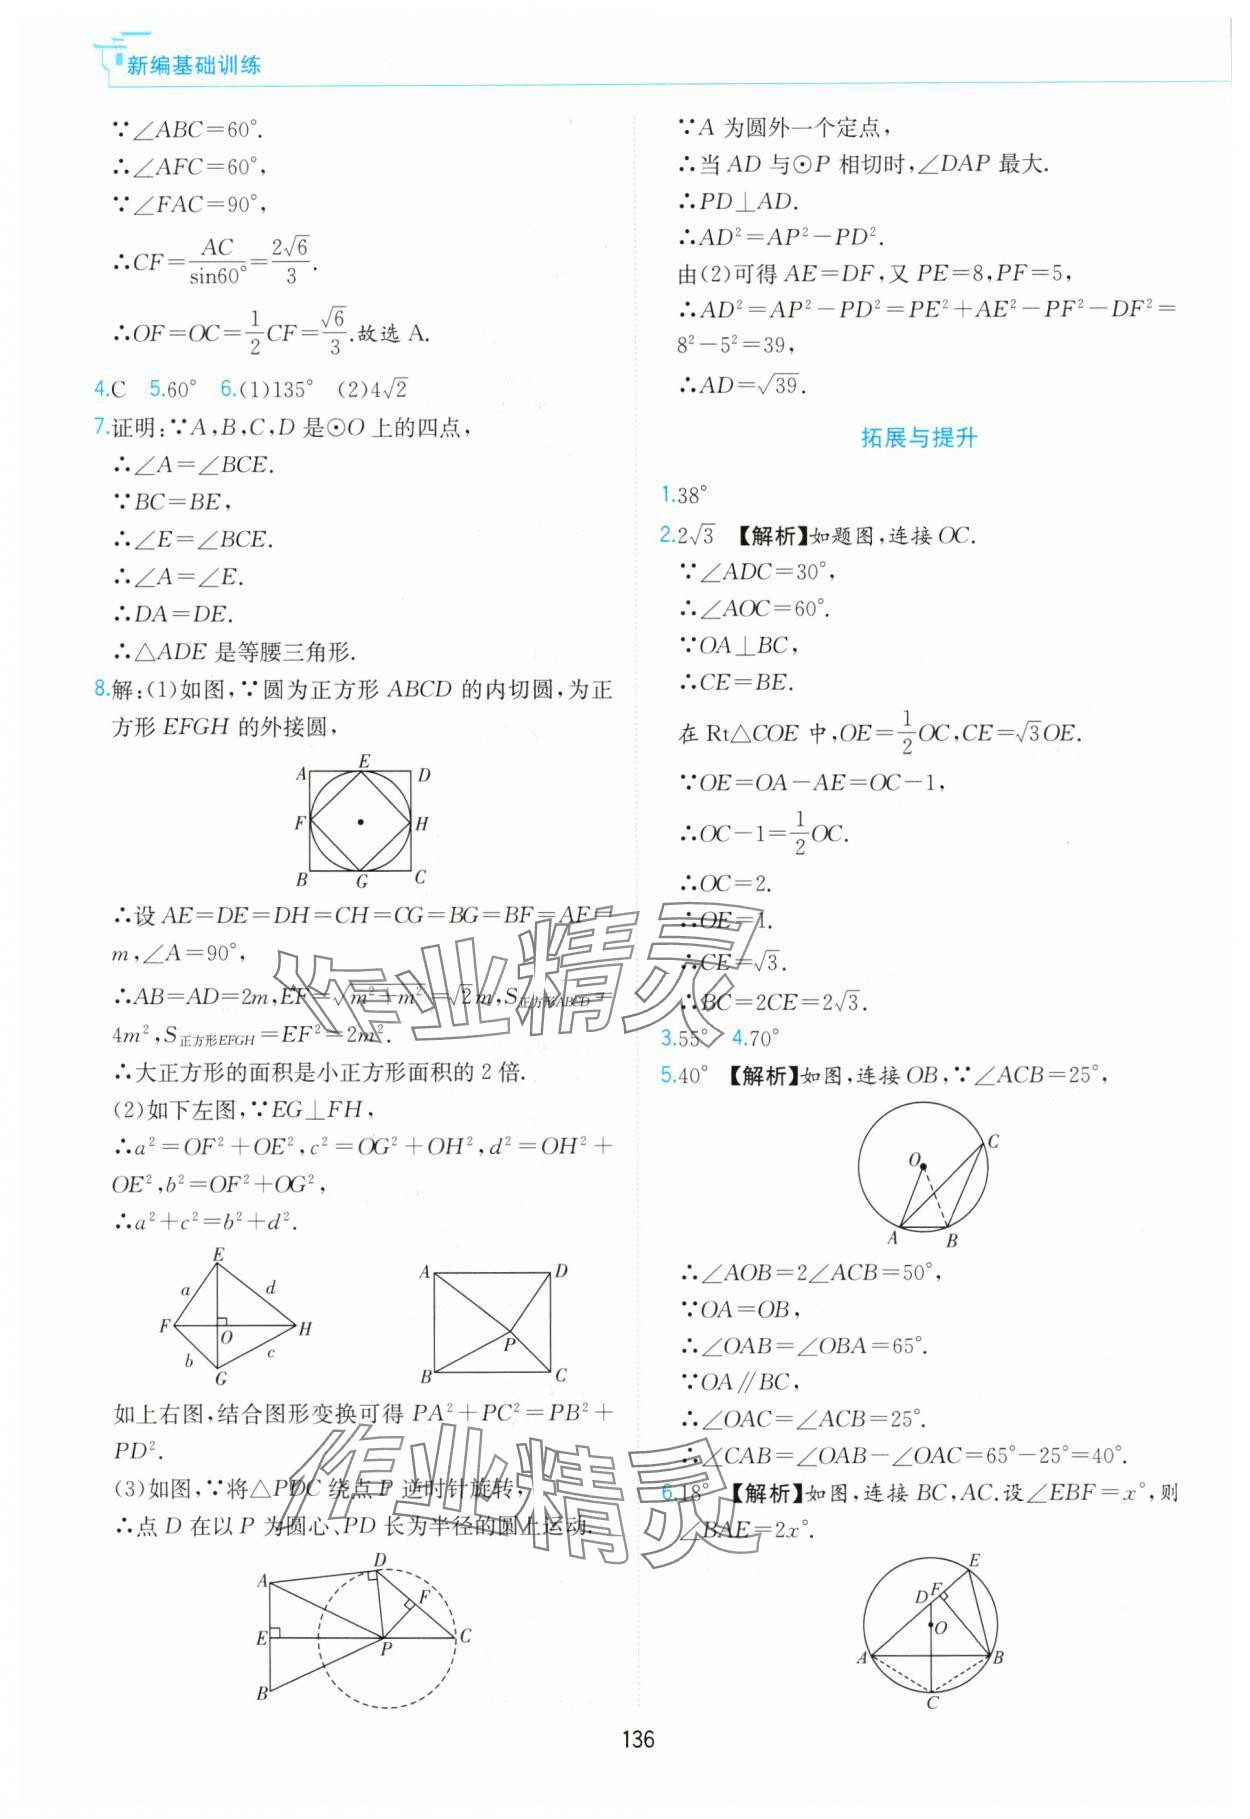 新编基础训练
∵∠ABC=60°.
∴∠AFC=60°,
∵∠FAC=90°,
∴CF=AC/sin60°=2√6/3.
∴OF=OC=1/2CF=√6/3.故选 A.
4.C 5.60° 6.(1)135° (2)4√2
7.证明:∵A,B,C,D 是⊙O 上的四点,
∴∠A=∠BCE.
∵BC=BE,
∴∠E=∠BCE.
∴∠A=∠E.
∴DA=DE.
∴△ADE 是等腰三角形.
8.解:(1)如图,∵圆为正方形 ABCD 的内切圆,为正
方形 EFGH 的外接圆,
A E D
F H
B G C
∴设 AE=DE=DH=CH=CG=BG=BF=AF=
m,∠A=90°,
∴AB=AD=2m,EF=√(m²+m²)=√2m,S正方形ABCD=
4m²,S正方形EFGH=EF²=2m².
∴大正方形的面积是小正方形面积的 2 倍.
(2)如下左图,∵EG⊥FH,
∴a²=OF²+OE²,c²=OG²+OH²,d²=OH²+
OE²,b²=OF²+OG²,
∴a²+c²=b²+d².
E a d F O H b c G
A D P B C
如上右图,结合图形变换可得 PA²+PC²=PB²+
PD².
(3)如图,∵将△PDC 绕点 P 逆时针旋转,
∴点 D 在以 P 为圆心、PD 长为半径的圆上运动.
A D F E P C B
∵A 为圆外一个定点,
∴当 AD 与⊙P 相切时,∠DAP 最大.
∴PD⊥AD.
∴AD²=AP²-PD².
由(2)可得 AE=DF,又 PE=8,PF=5,
∴AD²=AP²-PD²=PE²+AE²-PF²-DF²=
8²-5²=39,
∴AD=√39.
拓展与提升
1.38°
2.2√3 【解析】如题图,连接 OC.
∵∠ADC=30°,
∴∠AOC=60°.
∵OA⊥BC,
∴CE=BE.
在 Rt△COE 中,OE=1/2OC,CE=√3OE.
∵OE=OA-AE=OC-1,
∴OC-1=1/2OC.
∴OC=2.
∴OE=1.
∴CE=√3.
∴BC=2CE=2√3.
3.55° 4.70°
5.40° 【解析】如图,连接 OB,∵∠ACB=25°,
O C A B
∴∠AOB=2∠ACB=50°,
∵OA=OB,
∴∠OAB=∠OBA=65°.
∵OA∥BC,
∴∠OAC=∠ACB=25°.
∴∠CAB=∠OAB-∠OAC=65°-25°=40°.
6.18° 【解析】如图,连接 BC,AC.设∠EBF=x°,则
∠BAE=2x°.
E D F O A B C
作业精灵
作业精灵
136